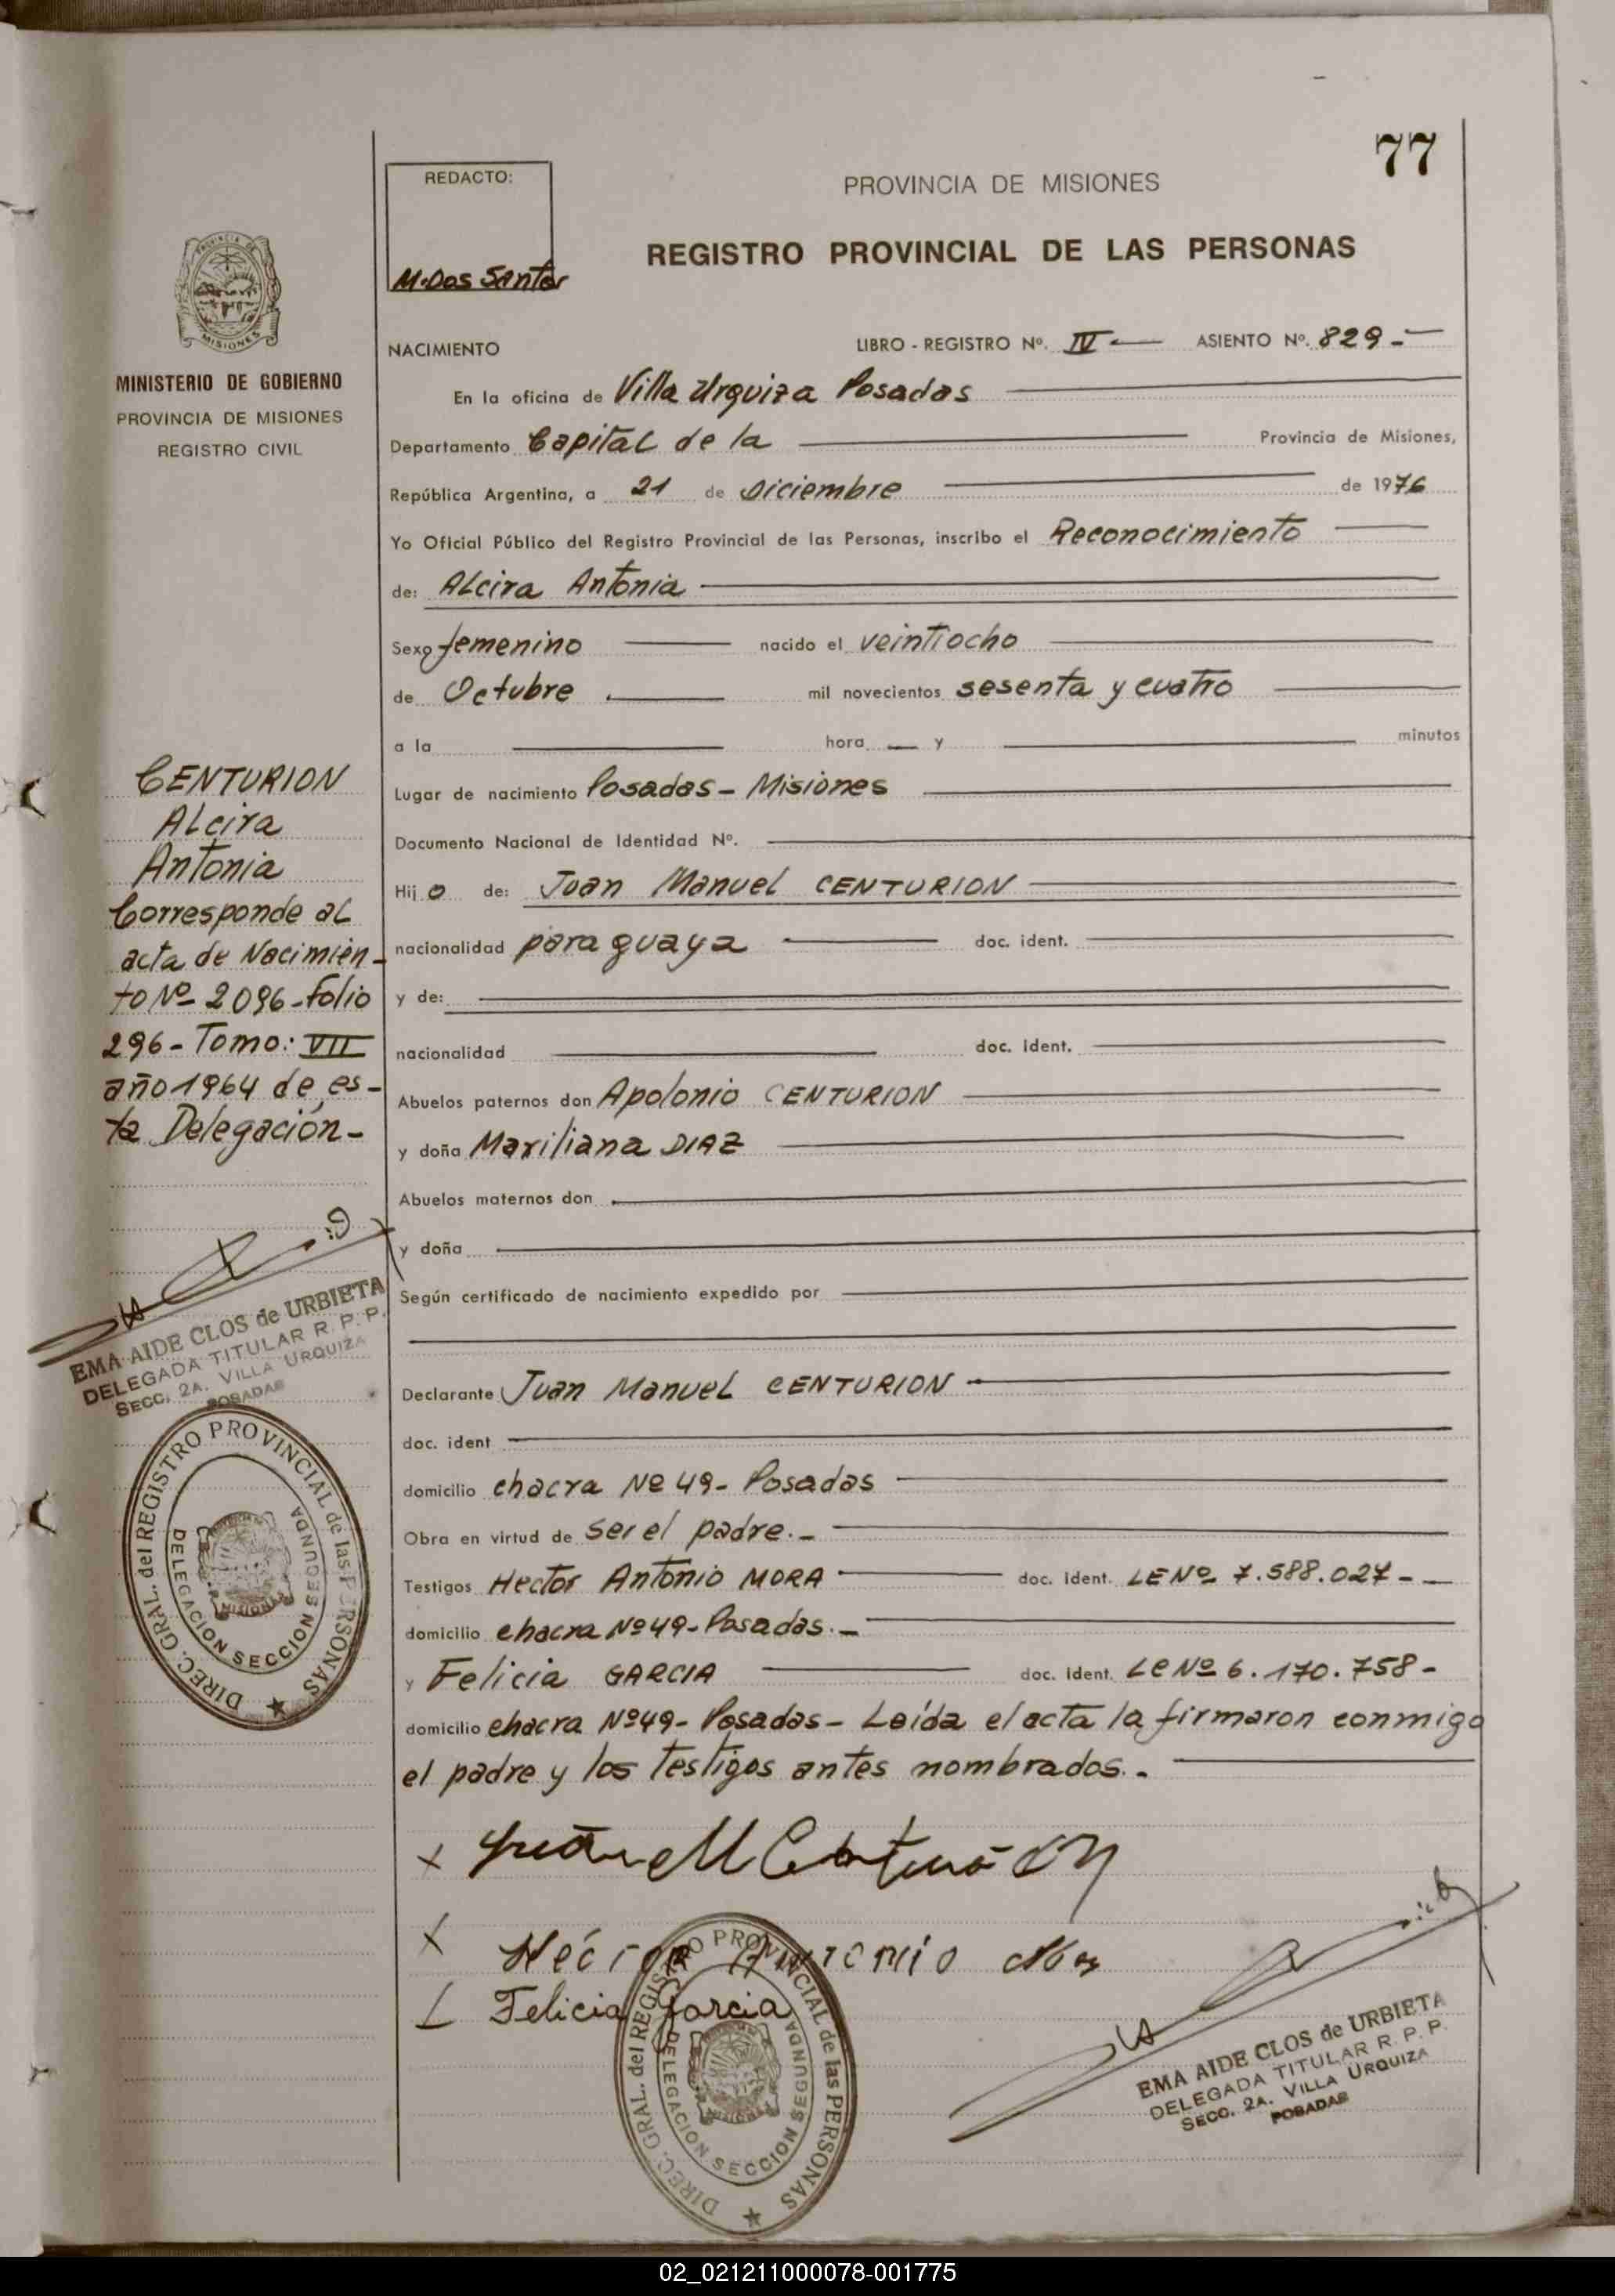 77
REDACTO:
M. Dos Santos
PROVINCIA DE MISIONES
REGISTRO PROVINCIAL DE LAS PERSONAS
MISIONES
MINISTERIO DE GOBIERNO
PROVINCIA DE MISIONES
REGISTRO CIVIL
NACIMIENTO LIBRO - REGISTRO Nº. IV - ASIENTO Nº. 829 -
En la oficina de Villa Urquiza Posadas
Departamento Capital de la Provincia de Misiones,
República Argentina, a 21 de Diciembre de 1976
Yo Oficial Público del Registro Provincial de las Personas, inscribo el Reconocimiento
de: Alcira Antonia
Sexo femenino nacido el veintiocho
de Octubre mil novecientos sesenta y cuatro
a la hora y minutos
Lugar de nacimiento Posadas - Misiones
Documento Nacional de Identidad Nº.
Hij o de: Juan Manuel CENTURION
nacionalidad paraguaya doc. ident.
y de:
nacionalidad doc. ident.
Abuelos paternos don Apolonio CENTURION
y doña Maxiliana DIAZ
Abuelos maternos don
y doña
Según certificado de nacimiento expedido por
Declarante Juan Manuel CENTURION
doc. ident
domicilio chacra Nº 49 - Posadas
Obra en virtud de ser el padre. -
Testigos Hector Antonio MORA doc. ident. LE Nº 7.588.027 -
domicilio chacra Nº 49 - Posadas. -
y Felicia GARCIA doc. ident. LE Nº 6.170.758 -
domicilio chacra Nº 49 - Posadas - Leída el acta la firmaron conmigo
el padre y los testigos antes nombrados. -
CENTURION
Alcira
Antonia
Corresponde al
acta de Nacimien-
to Nº 2096 - folio
296 - Tomo: VII
año 1964 de es-
ta Delegación -
EMA AIDE CLOS de URBIETA
DELEGADA TITULAR R. P. P.
SECC. 2A. VILLA URQUIZA
POSADAS
DIREC. GRAL. del REGISTRO PROVINCIAL de las PERSONAS
DELEGACION SECCION SEGUNDA
MISIONES
x Juan M Centurión
x Héctor Antonio Mora
Felicia Garcia
DIREC. GRAL. del REGISTRO PROVINCIAL de las PERSONAS
DELEGACION SECCION SEGUNDA
MISIONES
EMA AIDE CLOS de URBIETA
DELEGADA TITULAR R. P. P.
SECC. 2A. VILLA URQUIZA
POSADAS
02_021211000078-001775